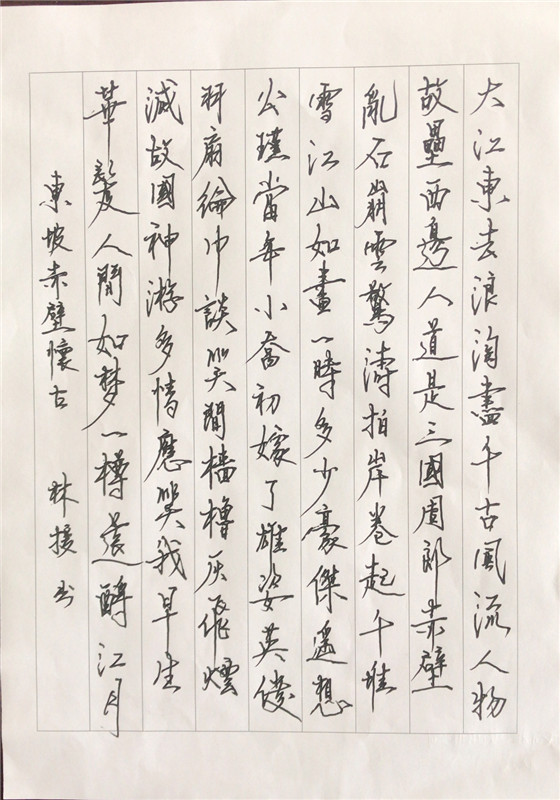 大江東去浪淘盡千古風流人物
故壘西邊人道是三國周郎赤壁
亂石崩雲驚濤拍岸卷起千堆
雪江山如畫一時多少豪傑遙想
公瑾當年小喬初嫁了雄姿英發
羽扇綸巾談笑間檣櫓灰飛煙
滅故國神游多情應笑我早生
華髮人間如梦一樽還酹江月
東坡赤壁懷古 林援书